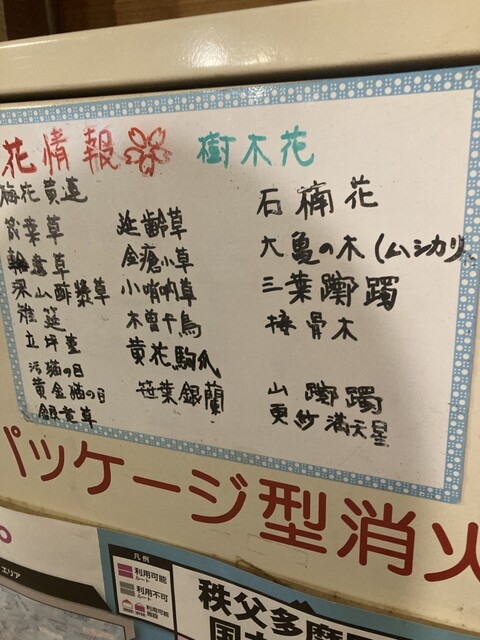 花情報
樹木花
梅花黄蓮
筒葉草
深山酢漿草
雛筵
立坪菫
活猫の目
黄金猫の目
銀竜草
延齢草
金瘡小草
小哨吶草
木曽千鳥
黄花駒爪
笹葉銀蘭
石楠花
大亀の木(ムシカリ)
三葉躑躅
接骨木
山躑躅
更紗満天星
パッケージ型消火
エリア
凡例
利用可能
ルート
利用不可
ルート
利用可能
施設
秩父多摩
国